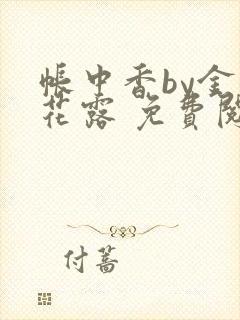 帳中香by金
花露 免費閱
付蓄